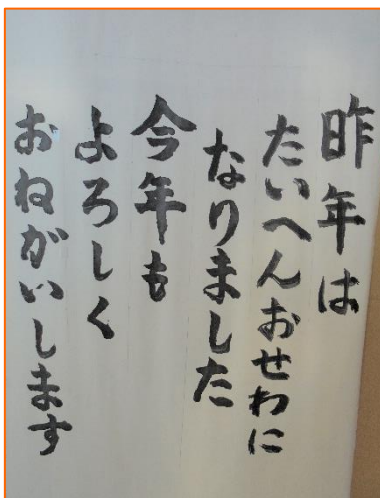 昨年は
たいへんおせわに
なりました
今年も
よろしく
おねがいします